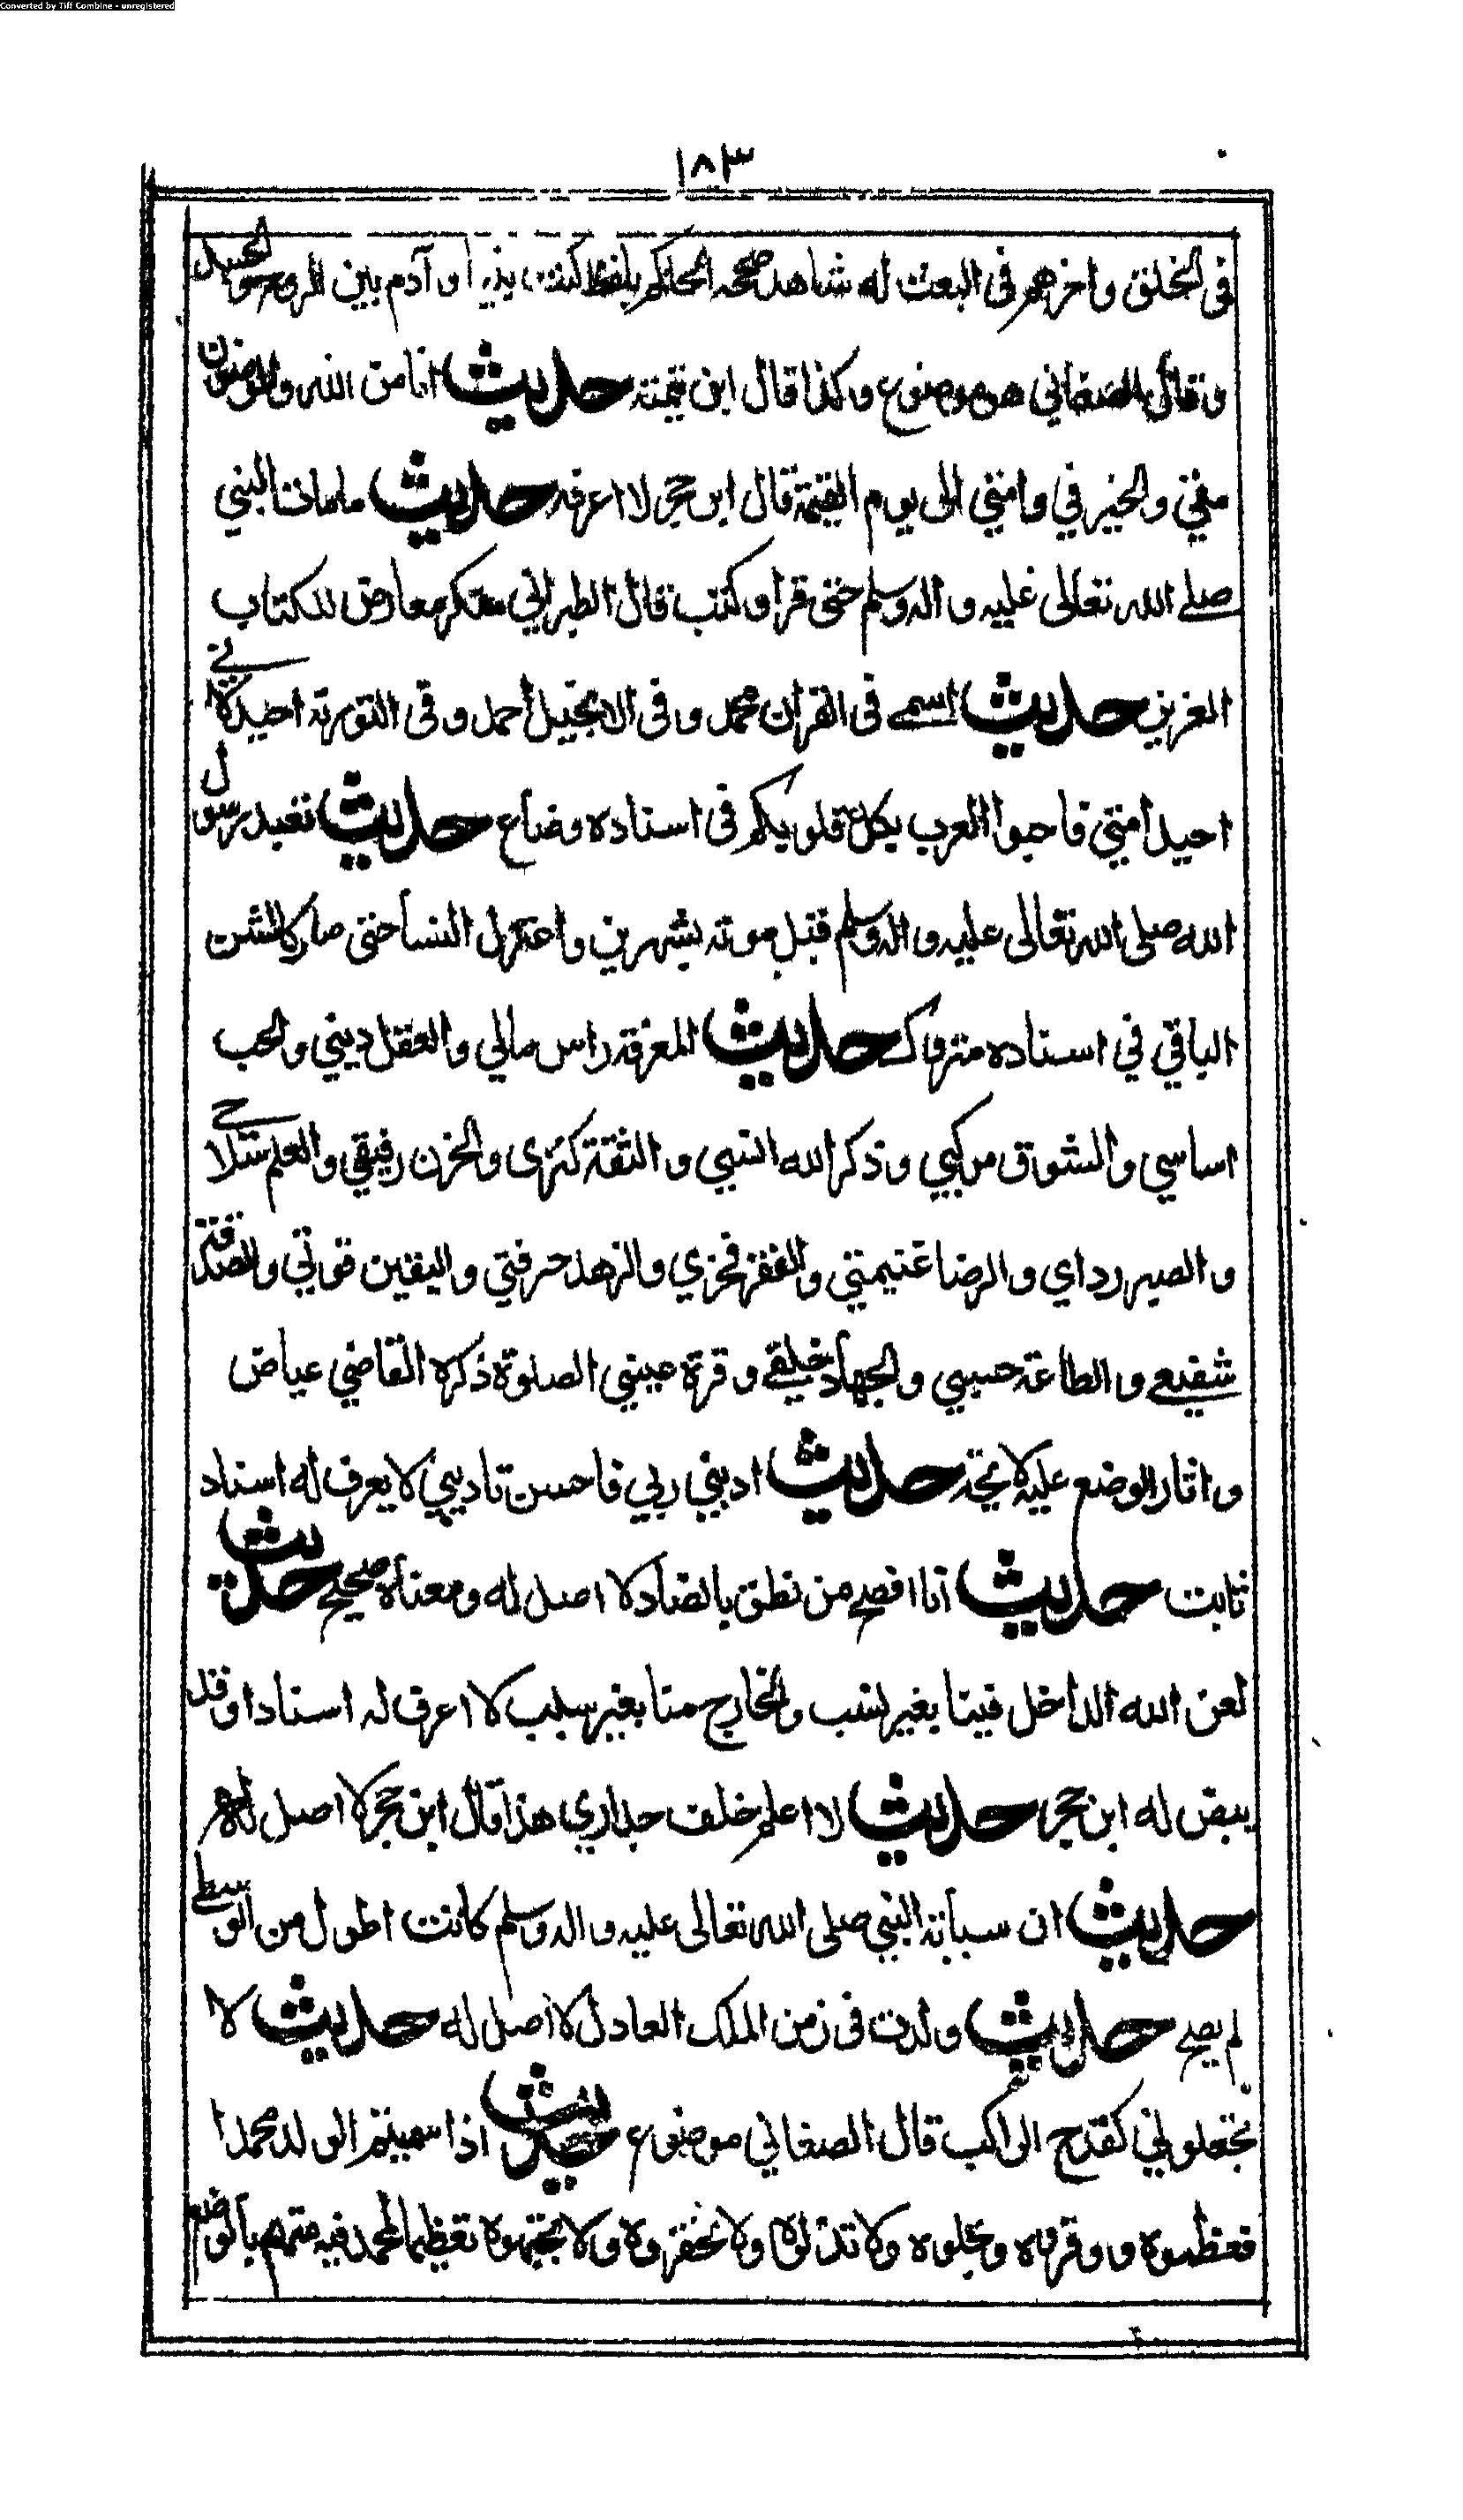 Converted by Tiff Combine - unregistered
١٨٣
فى الخلق واخرهم فى البعث له شاهد صححه الحاكم بلفظ كنت نبيا وآدم بين الروح والجسد
وقال الصغاني هو موضوع وكذا قال ابن تيمية حديث انا من الله والمومنون
مني والخير في وامتي الى يوم القيمة قال ابن حجر لا اعرفه حديث ما مات النبي
صلے الله تعالى عليه واله وسلم حتى قرا وكتب قال الطبراني منكر معارض للكتاب
العزيز حديث اسمے فى القران محمد وفى الانجيل أحمد وفى التورية احيد لاني
احيد امتي فاحبوا العرب بكل قلوبكم فى اسناده وضاع حديث تعبد رسول
الله صلى الله تعالى عليه واله وسلم قبل موته بشهرين واعتزل النسا حتى صار كالشن
البالي في اسناده متروك حديث المعرفة راس مالي والعقل ديني والحب
اساسي والشوق مركبي وذكر الله انسي والثقة كنزى والحزن رفيقي والعلم سلاحے
والصبر رداي والرضا غنيمتي والفقر فخري والزهد حرفتي واليقين قوتي والصدق
شفيعے والطاعة حسبي والجهاد خلقے وقرة عيني الصلوة ذكره القاضي عياض
واثار الوضع عليه لايحة حديث ادبني ربي فاحسن تاديبي لا يعرف له اسناد
ثابت حديث انا افصح من نطق بالضاد لا اصل له ومعناه صحيح حديث
لعن الله الداخل فينا بغير نسب والخارج منا بغير سبب لا اعرف له اسنادا وقد
بيض له ابن حجر حديث لا اعلم خلف جداري هذا قال ابن حجر لا اصل له
حديث ان سبابة النبي صلى الله تعالى عليه واله وسلم كانت اطول من الوسطے
لم يصح حديث ولدت فى زمن الملك العادل لا اصل له حديث لا
تجعلوني كقدح الراكب قال الصغاني موضوع حديث اذا سميتم الولد محمدا
فعظموه ووقروه وبجلوه ولا تذلوه ولا تحقروه ولا تجبهوه تعظيما لمحمد فيه متهم بالوضع